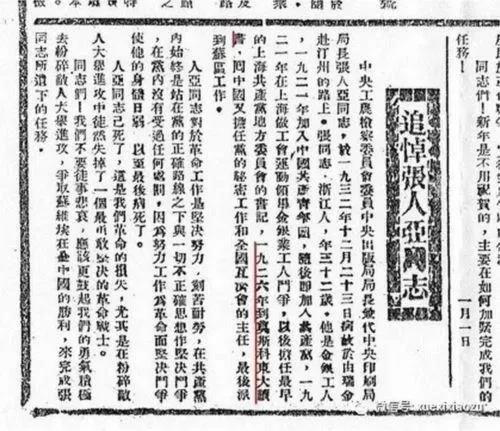 同志們！新年是不用祝賀的，主要在如何加緊完成我們的
任務！
一月一日
追悼張人亞同志
中央工農檢察委員會委員中央出版局局長兼代中央印刷局
局長張人亞同志，於一九三二年十二月二十三日病歿於由瑞金
赴汀州的路上。張同志，浙江人，年三十二歲。他是金銀工人
，一九二一年加入中國共產青年團，隨後即加入共產黨，一九
二一年在上海做工會運動領導金銀業工人鬥爭，以後擔任最早
的上海共產黨地方委員會的書記，一九二六年到莫斯科東大讀
書，回中國又擔任黨的秘密工作和全國互濟會的主任，最後派
到蘇區工作。
人亞同志對於革命工作是堅決努力，刻苦耐勞，在共產黨
內始終是站在黨的正確路線之下與一切不正確思想作堅決鬥爭
，在黨內沒有受過任何處罰，因為努力工作為革命而堅決鬥爭
使他的身體日弱，以至最後病死了。
人亞同志已死了，這是我們革命的損失，尤其是在粉碎敵
人大舉進攻中徒然失掉了一個最勇敢堅決的革命戰士。
同志們！我們不要徒事悲哀，應該更鼓起我們的勇氣積極
去粉碎敵人大舉進攻，爭取蘇維埃在全中國的勝利，來完成張
同志所遺下的任務。
微信号: xuexixiaozu